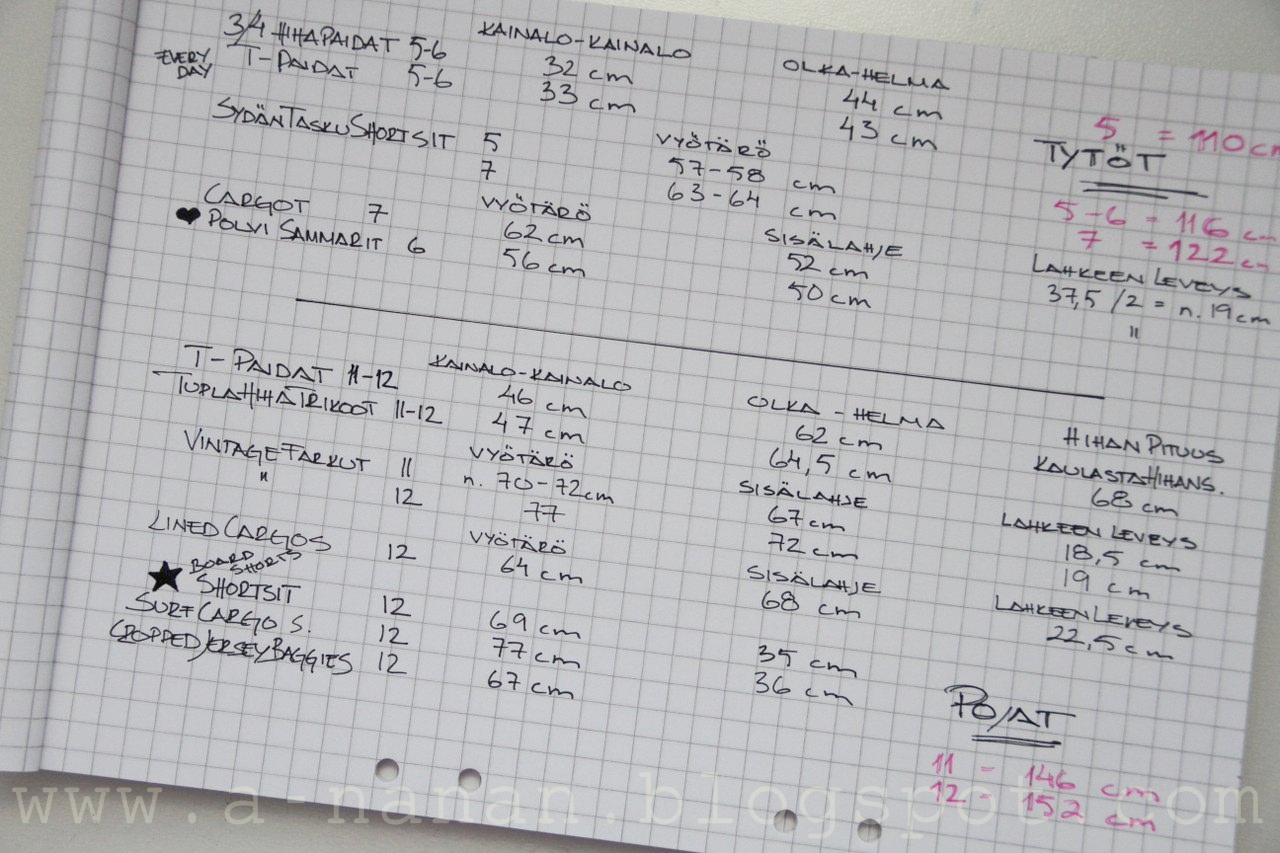 3/4 HIHAPAIDAT 5-6 KAINALO-KAINALO OLKA-HELMA
32 cm 44 cm
EVERY DAY T-PAIDAT 5-6 33 cm 43 cm
5 = 110 cm
TYTÖT
5-6 = 116 cm
7 = 122 cm
SYDÄNTASKUSHORTSIT 5 VYÖTÄRÖ
57-58 cm
7 63-64 cm
CARGOT 7 VYÖTÄRÖ SISÄLAHJE LAHKEEN LEVEYS
62 cm 52 cm 37,5 /2 = n. 19 cm
♥ POLVI SAMMARIT 6 56 cm 50 cm "
T-PAIDAT 11-12 KAINALO-KAINALO OLKA-HELMA HIHAN PITUUS
46 cm 62 cm KAULASTAHIHANS.
TUPLAHIHATRIKOOT 11-12 47 cm 64,5 cm 68 cm
VINTAGE FARKUT 11 VYÖTÄRÖ SISÄLAHJE LAHKEEN LEVEYS
n. 70-72 cm 67 cm 18,5 cm
" 12 77 72 cm 19 cm
LINED CARGOS 12 VYÖTÄRÖ SISÄLAHJE LAHKEEN LEVEYS
64 cm 68 cm 22,5 cm
BOARD SHORTS
★ SHORTSIT 12 69 cm
SURF CARGO S. 12 77 cm 35 cm
CROPPED JERSEY BAGGIES 12 67 cm 36 cm
POJAT
11 - 146 cm
12 - 152 cm
www.a-nanan.blogspot.com